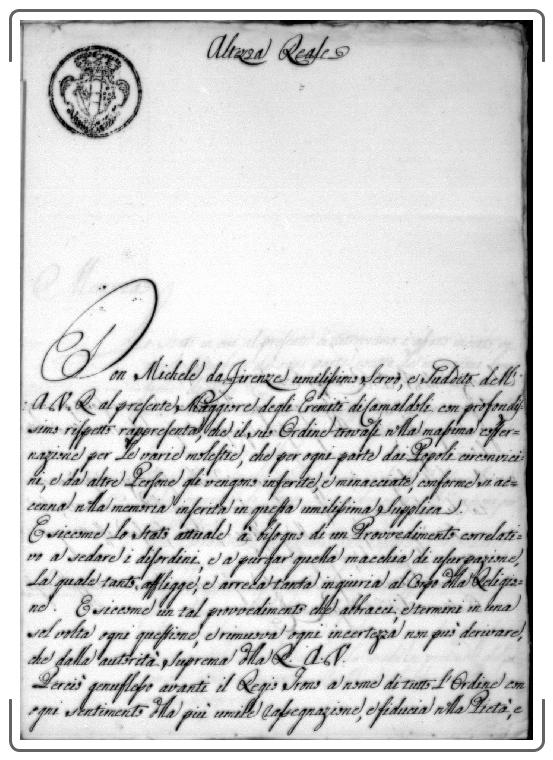 Altezza Reale
Don Michele da Firenze umilissimo Servo, e Suddito dell'
A. V. R. al presente Maggiore degli Eremiti di Camaldoli con profondis-
simo rispetto rappresenta, che il suo Ordine trovasi nella massima coster-
nazione per le varie molestie, che per ogni parte dai Popoli circonvici-
ni, e da altre Persone gli vengono inferite, e minacciate, conforme si ac-
cenna nella memoria inserita in questa umilissima Supplica.
E siccome lo stato attuale à bisogno di un Provvedimento correlati-
vo a sedare i disordini, e a purgar quella macchia di usurpazione,
la quale tanto affligge, e arreca tanta ingiuria al Corpo della Religio-
ne. E siccome un tal provvedimento che abbracci, e termini in una
sol volta ogni questione, e rimuova ogni incertezza non può derivare,
che dalla autorità Suprema della R. A. V.
Perciò genuflesso avanti il Regio Trono a nome di tutto l'Ordine con
ogni sentimento della più umile rassegnazione, e fiducia nella Pietà, e